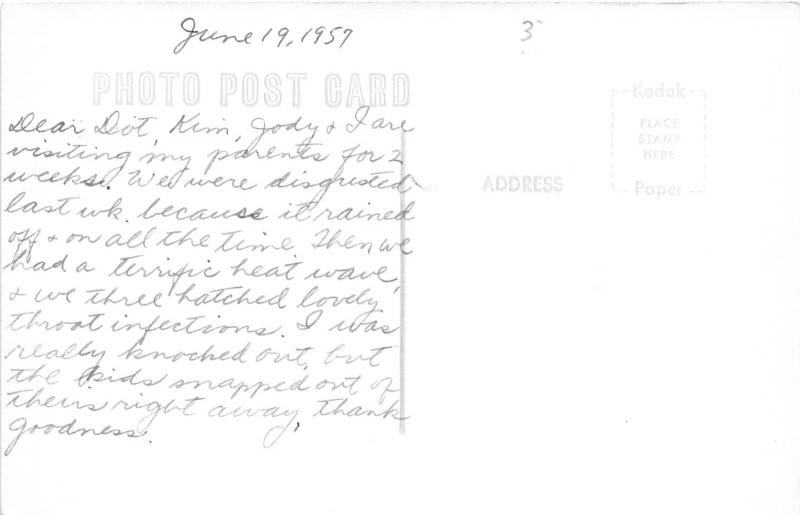 June 19, 1957
3
PHOTO POST CARD
Dear Dot, Kim, Jody & I are
visiting my parents for 2
weeks. We were disgusted
last wk. because it rained
off & on all the time. Then we
had a terrific heat wave,
& we three hatched lovely
throat infections. I was
really knocked out, but
the kids snapped out of
theirs right away, thank
goodness.
Kodak
PLACE
STAMP
HERE
Paper
ADDRESS